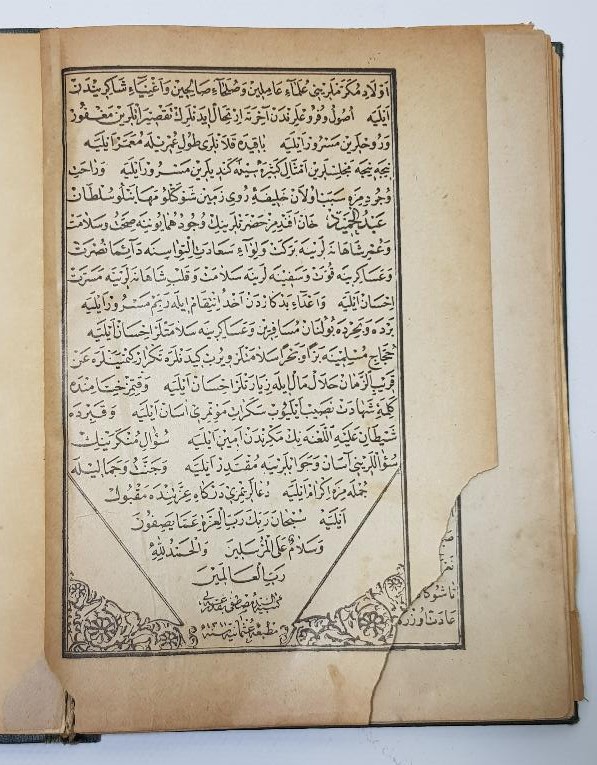 اَوْلَادِ مُكَرَّمَلَرِينِى عُلَمَاءِ عَامِلِينْ وَصُلَحَاءِ صَالِحِينْ وَاَغْنِيَاءِ شَاكِرِينْدَنْ
اَيْلَيَه اُصُولْ وَفُرُوعْلَرِنْدَنْ آخِرَتَه اِرْتِحَالْ اِيدَنْلَرِكْ تَقْصِيرَاتْلَرِينْ مَغْفُورْ
وَرُوحْلَرِينْ مَسْرُورْ اَيْلَيَه بَاقِيدَه قَلَانْلَرِى طُولِ عُمْرِيلَه مُعَمَّرْ اَيْلَيَه
نِيجَه نِيجَه مَجْلِسْلَرِينْ اَمْثَالِ كَثِيرَه سِينَه كَنْدِيلَرِينْ مَسْرُورْ اَيْلَيَه وَرَاحَتِ
وُجُودِمِزَه سَبَبْ اُولَانْ خَلِيفَهِٔ رُوىِ زَمِينْ شَوْكَتْلُو مَهَابَتْلُو سُلْطَانْ
عَبْدُالْحَمِيدْ خَانْ اَفَنْدِمِزْ حَضْرَتْلَرِينِكْ وُجُودِ هُمَايُونِينَه صِحَّتْ وَسَلَامَتْ
وَعُمْرِ شَاهَانَه لَرِينَه بَرَكَتْ وَلِوَاءِ سَعَادَتِ الْتِوَاسِينَه دَائِمًا نُصْرَتْ
وَعَسَاكِرِينَه قُوَّتْ وَسَفِينَه لَرِينَه سَلَامَتْ وَقَلْبِ شَاهَانَه لَرِينَه مَسَرَّتْ
اِحْسَانْ اَيْلَيَه وَاَعْدَاءِ بَدْكَارْدَنْ اَخْذِ اِنْتِقَامْ اِيلَه مَسْرُورْ اَيْلَيَه
بَرْدَه وَبَحِرْدَه بُولُنَانْ مُسَافِرِينْ وَعَسَاكِرِينَه سَلَامَتْلَرْ اِحْسَانْ اَيْلَيَه
حُجَّاجِ مُسْلِمِينَه بَرًّا وَبَحْرًا سَلَامَتْلَرْ وِيرُوبْ كِيدَنْلَرَه تَكْرَارْ كِتْمَيَنْلَرَه عَنْ
قَرِيبِ الزَّمَانْ حَلَالْ مَالْ اِيلَه زِيَارَتْلَرْ اِحْسَانْ اَيْلَيَه وَقْتِ خِتَامِنْدَه
كَلِمَهِٔ شَهَادَتْ نَصِيبْ اَيْلَيُوبْ سَكَرَاتِ مَوْتِمِزِى آسَانْ اَيْلَيَه وَقَبِرْدَه
شَيْطَانْ عَلَيْهِ اللَّعْنَه نِكْ مَكْرِنْدَنْ اَمِينْ اَيْلَيَه سُؤَالِ مُنْكَرَيْنِكْ
سُؤَاللَرِينِى آسَانْ وَجَوَابْلَرِينَه مُقْتَدِرْ اَيْلَيَه وَجَنَّتْ وَجَمَالِيلَه
جُمْلَه مِزَه اِكْرَامْ اَيْلَيَه دُعَالَرِيمِزِى دَرْكَاهِ عِزَّتِنْدَه مَقْبُولْ
اَيْلَيَه سُبْحَانَ رَبِّكَ رَبِّ الْعِزَّةِ عَمَّا يَصِفُونَ
وَسَلَامٌ عَلَى الْمُرْسَلِينَ وَالْحَمْدُ لِلّٰهِ
رَبِّ الْعَالَمِينَ
كتبه السيد مصطفى
مطبعۀ عثمانيه
عادت